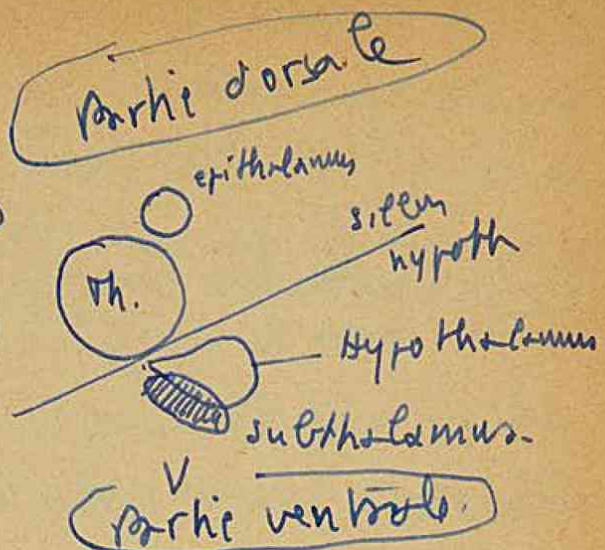 Partie dorsale
epithalamus
sillon
hypoth
Th.
Hypothalamus
subthalamus.
V
Partie ventrale.